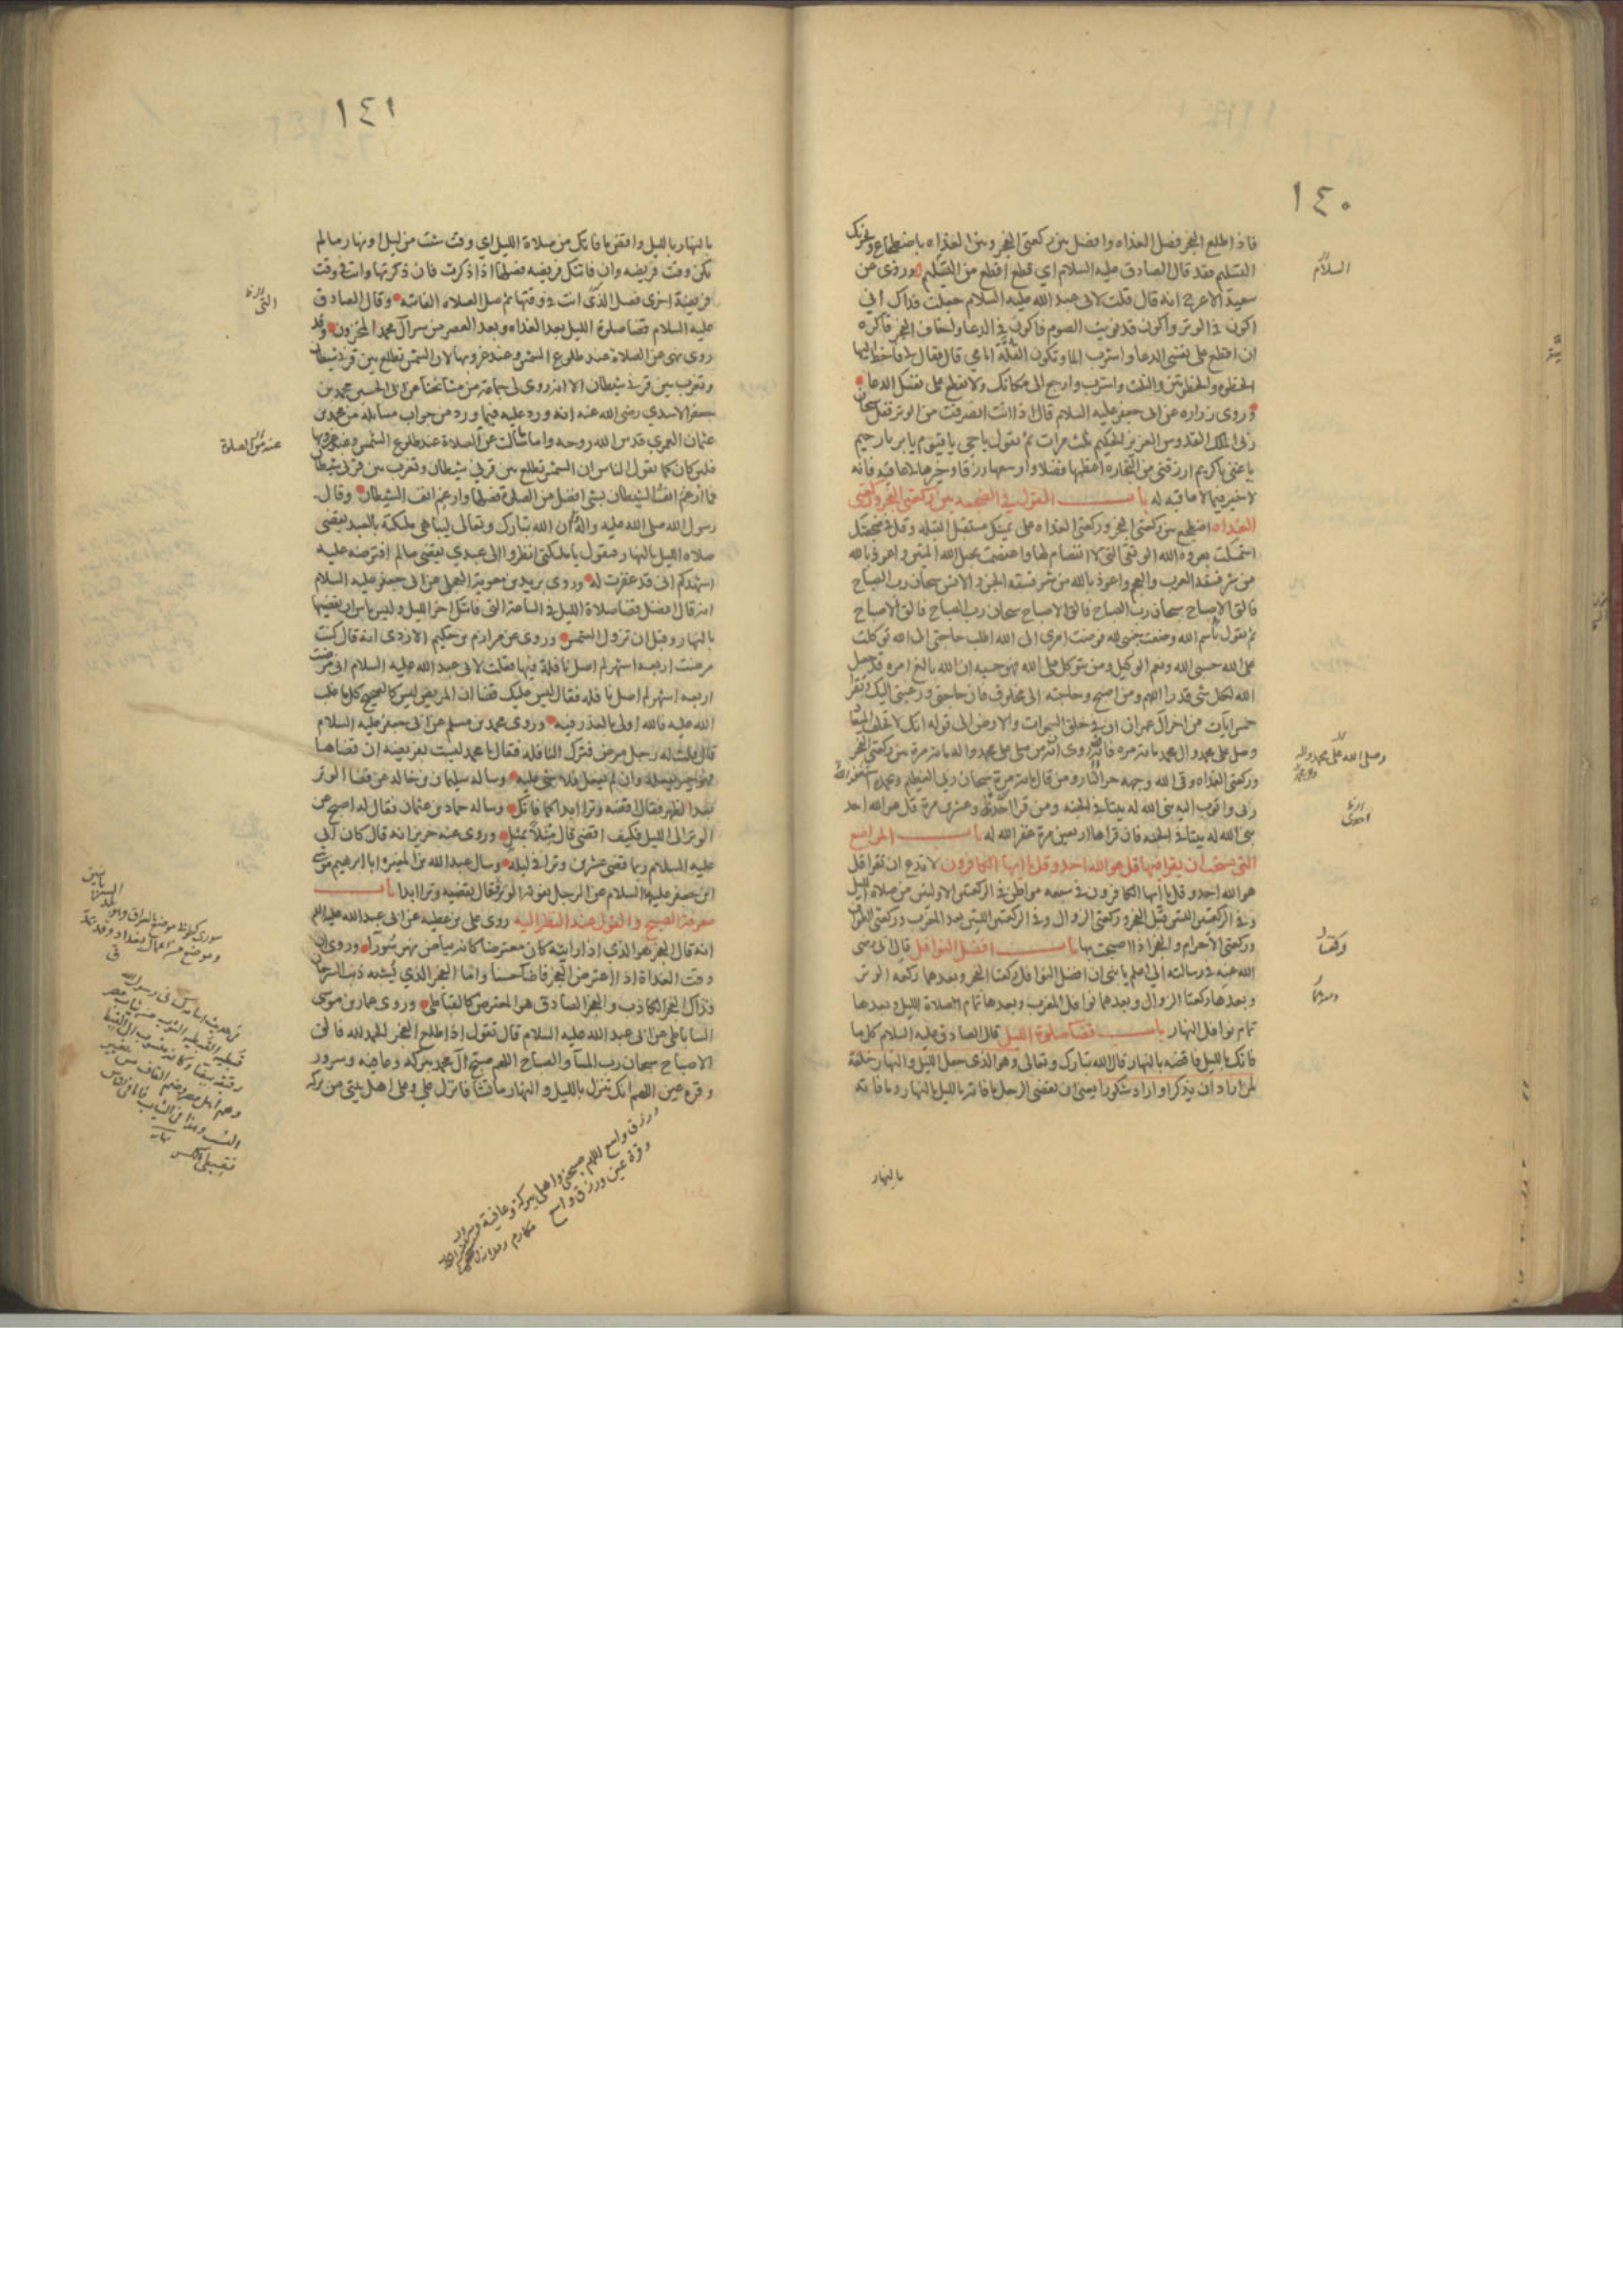 ١٤٠
فاذا طلع الفجر فصل الغداه وافصل بين ركعتي الفجر وبين الغداه باضطجاع ويجزيك
التسليم فقد قال الصادق عليه السلام اي قطع اقطع من التسليم وروى عن
سعيد الاعرج انه قال قلت لابى عبد الله عليه السلام جعلت فداك اني
اكون في الوتر واكون قد نويت الصوم فاكون في الدعا واخاف الفجر فاكره
ان اقطع على نفسى الدعا واشرب الما وتكون القلة امامي قال فقال لي فاخط اليها
الخطوه والخطوتين والثلث واشرب وارجع الى مكانك ولا تقطع على نفسك الدعا
وروى زراره عن ابى جعفر عليه السلام قال اذا انت انصرفت من الوتر فقل سبحان
ربى الملك القدوس العزيز الحكيم ثلث مرات ثم تقول يا حي يا قيوم يا بر يا رحيم
يا غنى يا كريم ارزقنى من التجاره اعظمها فضلا واوسعها رزقا وخيرها لى عاقبه فانه
لا خير فيما لا عاقبه له باب القول في الضجعه بين ركعتى الفجر وركعتى
الغداه اضطجع بين ركعتى الفجر وركعتى الغداه على يمينك مستقبل القبله وقل في ضجعتك
استمسكت بعروه الله الوثقى التى لا انفصام لها واعتصمت بحبل الله المتين واعوذ بالله
من شر فسقه العرب والعجم واعوذ بالله من شر فسقه الجن والانس سبحان رب الصباح
فالق الاصباح سبحان رب الصباح فالق الاصباح سبحان رب الصباح فالق الاصباح
ثم تقول بسم الله وضعت جنبى لله فوضت امرى الى الله اطلب حاجتى الى الله توكلت
على الله حسبى الله ونعم الوكيل ومن يتوكل على الله فهو حسبه ان الله بالغ امره قد جعل
الله لكل شئ قدرا اللهم ومن اصبح وحاجته الى مخلوق فان حاجتى ورغبتى اليك وتقرا
خمس ايات من اخر ال عمران ان في خلق السموات والارض الى قوله انك لا تخلف الميعاد
وصل على محمد وال محمد مائه مره فانه روى انه من صلى على محمد واله مائه مرة بين ركعتى الفجر
وركعتى الغداه وقى الله وجهه حر النار ومن قال مائه مرة سبحان ربى العظيم وبحمده استغفر الله
ربى واتوب اليه بنى الله له بيتا في الجنه ومن قرا احدى وعشرين مرة قل هو الله احد
بنى الله له بيتا في الجنه فان قراها اربعين مرة غفر الله له باب المواضع
التى يستحب ان يقرا فيها قل هو الله احد وقل يا ايها الكافرون لا تدع ان تقرا قل
هو الله احد وقل يا ايها الكافرون في سبعه مواطن في الركعتين الاولتين من صلاه الليل
وفى الركعتين اللتين قبل الفجر وركعتى الزوال وفى الركعتين اللتين بعد المغرب وركعتى الطواف
وركعتى الاحرام والفجر اذا اصبحت بها باب افضل النوافل قال ابى رضى
الله عنه في رسالته الى اعلم يا بنى ان افضل النوافل ركعتا الفجر وبعدهما ركعه الوتر
وبعدها ركعتا الزوال وبعدهما نوافل المغرب وبعدها تمام الصلاة الليل وبعدها
تمام نوافل النهار باب قضا صلوة الليل قال الصادق عليه السلام كل ما
فاتك بالليل فاقضه بالنهار قال الله تبارك وتعالى وهو الذى جعل الليل والنهار خلفة
لمن اراد ان يذكر او اراد شكورا يعنى ان يقضى الرجل ما فاته بالليل بالنهار وما فاته
بالنهار
السلام
وصلى الله على محمد واله
احدى
ركعتا
١٤١
بالنهار بالليل واقض ما فاتك من صلاة الليل اي وقت شئت من ليل او نهار ما لم
يكن وقت فريضه وان فاتتك فريضه فصلها اذا ذكرت فان ذكرتها وانت في وقت
فريضة اخرى فصل التى انت في وقتها ثم صل الصلاه الفائته وقال الصادق
عليه السلام قضا صلوة الليل بعد الغداه وبعد العصر من سر آل محمد المخزون وقد
روى نهى عن الصلاة عند طلوع الشمس وعند غروبها لان الشمس تطلع بين قرنى شيطان
وتغرب بين قرنى شيطان الا انه روى لى جماعة من مشائخنا عن ابى الحسين محمد بن
جعفر الاسدي رضى الله عنه انه ورد عليه فيما ورد من جواب مسائله من محمد بن
عثمان العمري قدس الله روحه واما ما سألت عن الصلاة عند طلوع الشمس وعند غروبها
فلئن كان كما يقول الناس ان الشمس تطلع بين قرني شيطان وتغرب بين قرنى شيطان
فما ارغم انف الشيطان بشئ افضل من الصلوة فصلها وارغم انف الشيطان وقال
رسول الله صلى الله عليه واله ان الله تبارك وتعالى ليباهى ملئكته بالعبد يقضى
صلاه الليل بالنهار فيقول يا ملئكتى انظروا الى عبدي يقضى ما لم افترضه عليه
اشهدكم انى قد غفرت له وروى بريد بن معوية العجلى عن ابى جعفر عليه السلام
انه قال افضل قضا صلاة الليل في الساعة التى فاتتك اخر الليل وليس باس ان تقضيها
بالنهار وقبل ان تزول الشمس وروى عن مرازم بن حكيم الازدى انه قال كنت
مرضت اربعه اشهر لم اصل نافلة فيها فقلت لابى عبد الله عليه السلام انى مرضت
اربعه اشهر لم اصل نافله فقال ليس عليك قضا ان المريض ليس كالصحيح كل ما غلب
الله عليه فالله اولى بالعذر فيه وروى محمد بن مسلم عن ابى جعفر عليه السلام
قال قلت له رجل مرض فترك النافله فقال يا محمد ليست بفريضه ان قضاها
فهو خير يفعله وان لم يفعل فلا شئ عليه وساله سليمان بن خالد عن قضا الوتر
بعد الظهر فقال اقضه وترا ابدا كما فاتك وساله حماد بن عثمان فقال له اصبح عن
الوتر الى الليل فكيف اقضى قال مثلا بمثل وروى عنه حريز انه قال كان ابي
عليه السلام ربما قضى عشرين وترا في ليله وسال عبد الله بن المغيره ابا ابرهيم موسى
ابن جعفر عليهما السلام عن الرجل يفوته الوتر فقال يقضيه وترا ابدا باب
معرفة الصبح والقول عند النظر اليه روى على بن عطيه عن ابى عبد الله عليه السلم
انه قال الفجر هو الذي اذا رايته كان معترضا كانه بياض نهر سورا وروى ان
وقت الغداة اذا اعترض الفجر فاضاء حسنا واما الفجر الذي يشبه ذنب السرحان
فذاك الفجر الكاذب والفجر الصادق هو المعترض كالقباطى وروى عمار بن موسى
الساباطى عن ابى عبد الله عليه السلام قال تقول اذا طلع الفجر الحمد لله فالق
الاصباح سبحان رب المسآ والصباح اللهم صبح آل محمد ببركه وعافيه وسرور
وقره عين اللهم انك تنزل بالليل والنهار ما تشا فانزل علي وعلى اهل بيتى من بركه
ورزق واسع اللهم صبحنى واهلى ببركة وعافية وسرور
وقرة عين ورزق واسع
التى
عند الصلوة
سورى كطوبى موضع بالعراق
وموضع من اعمال بغداد